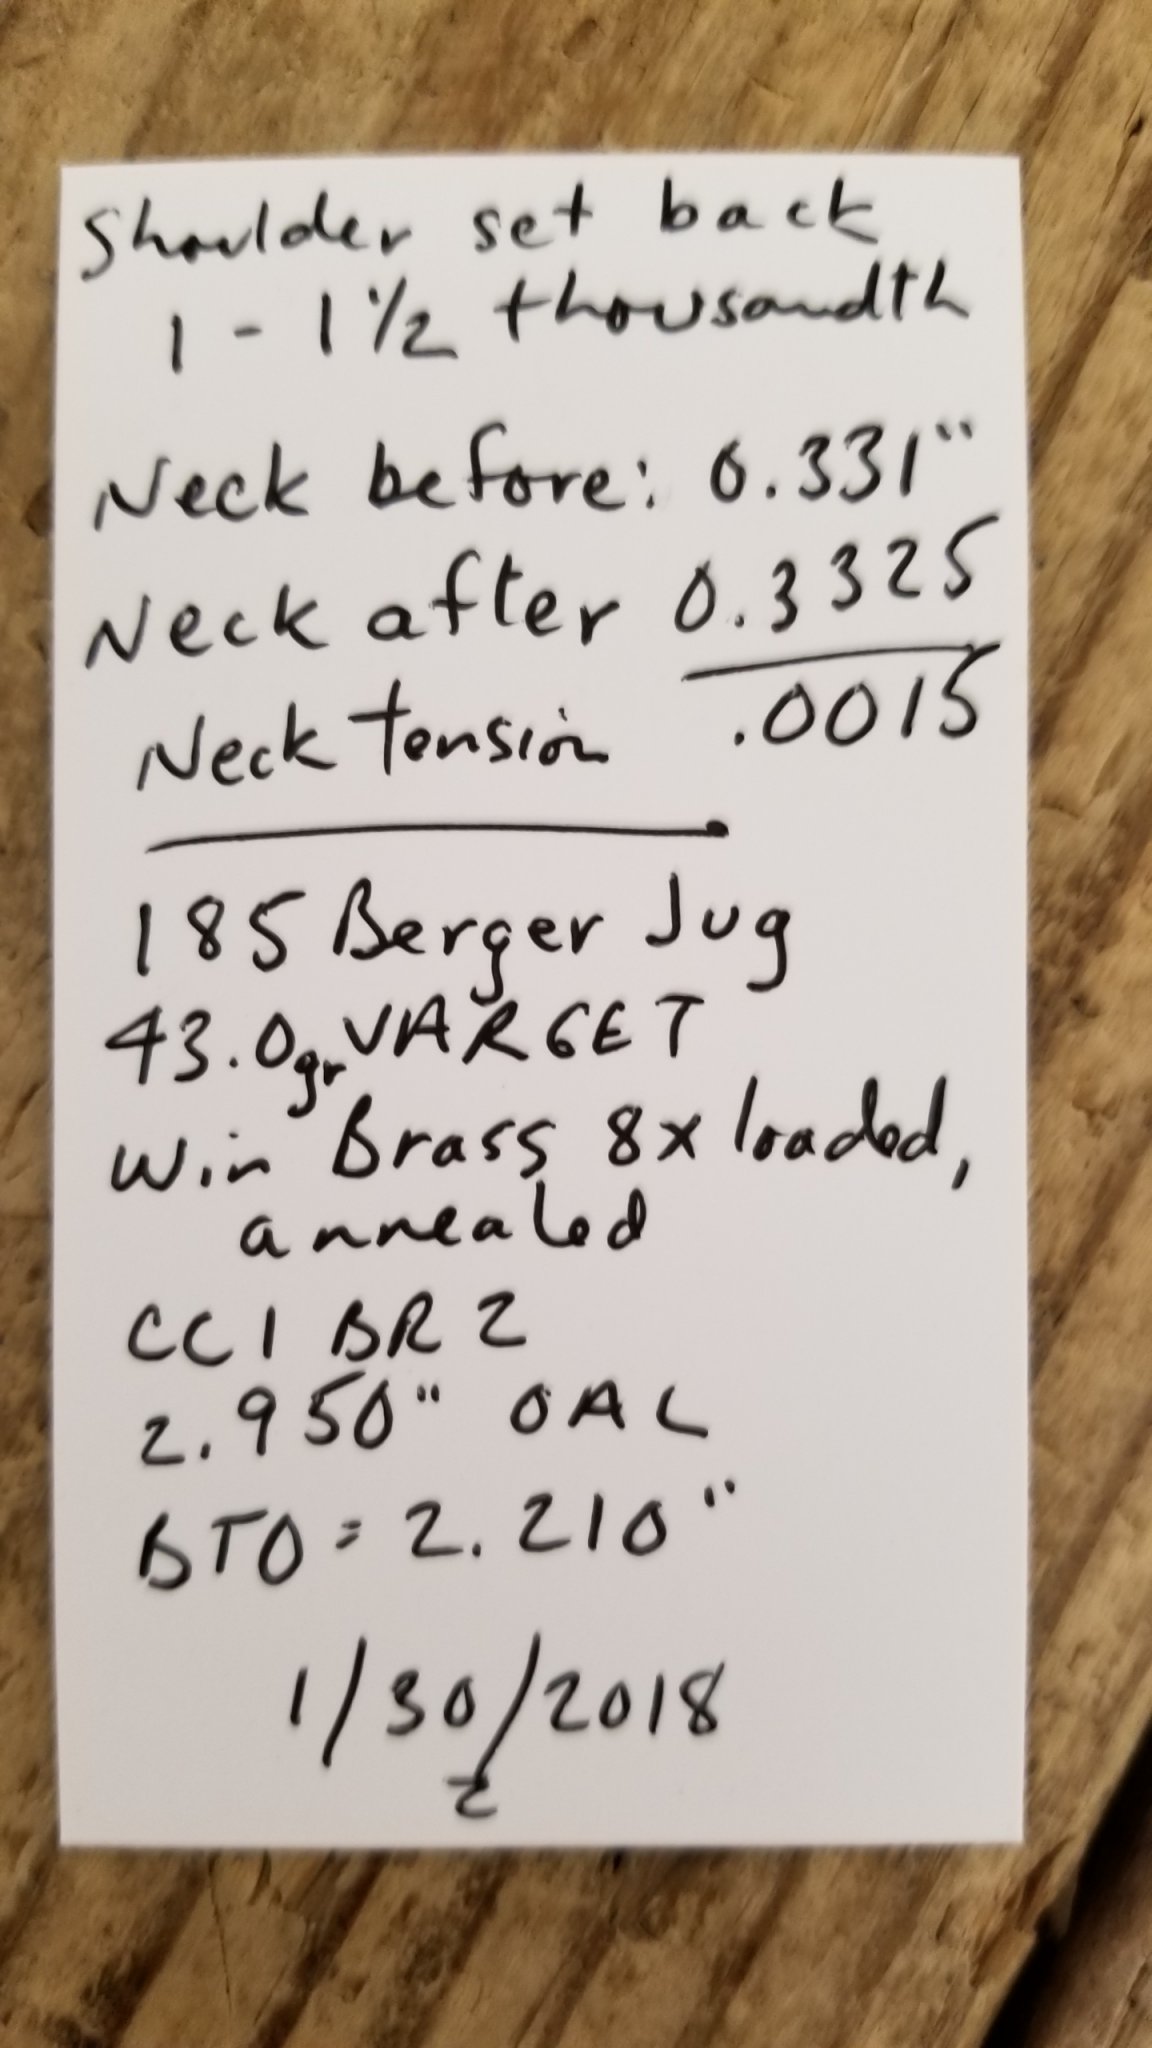 Shoulder set back
1 - 1 1/2 thousandth
Neck before: 0.331"
Neck after 0.3325
Neck tension .0015
185 Berger Jug
43.0gr VARGET
Win Brass 8x loaded,
annealed
CCI BR2
2.950" OAL
BTO = 2.210"
1/30/2018
z